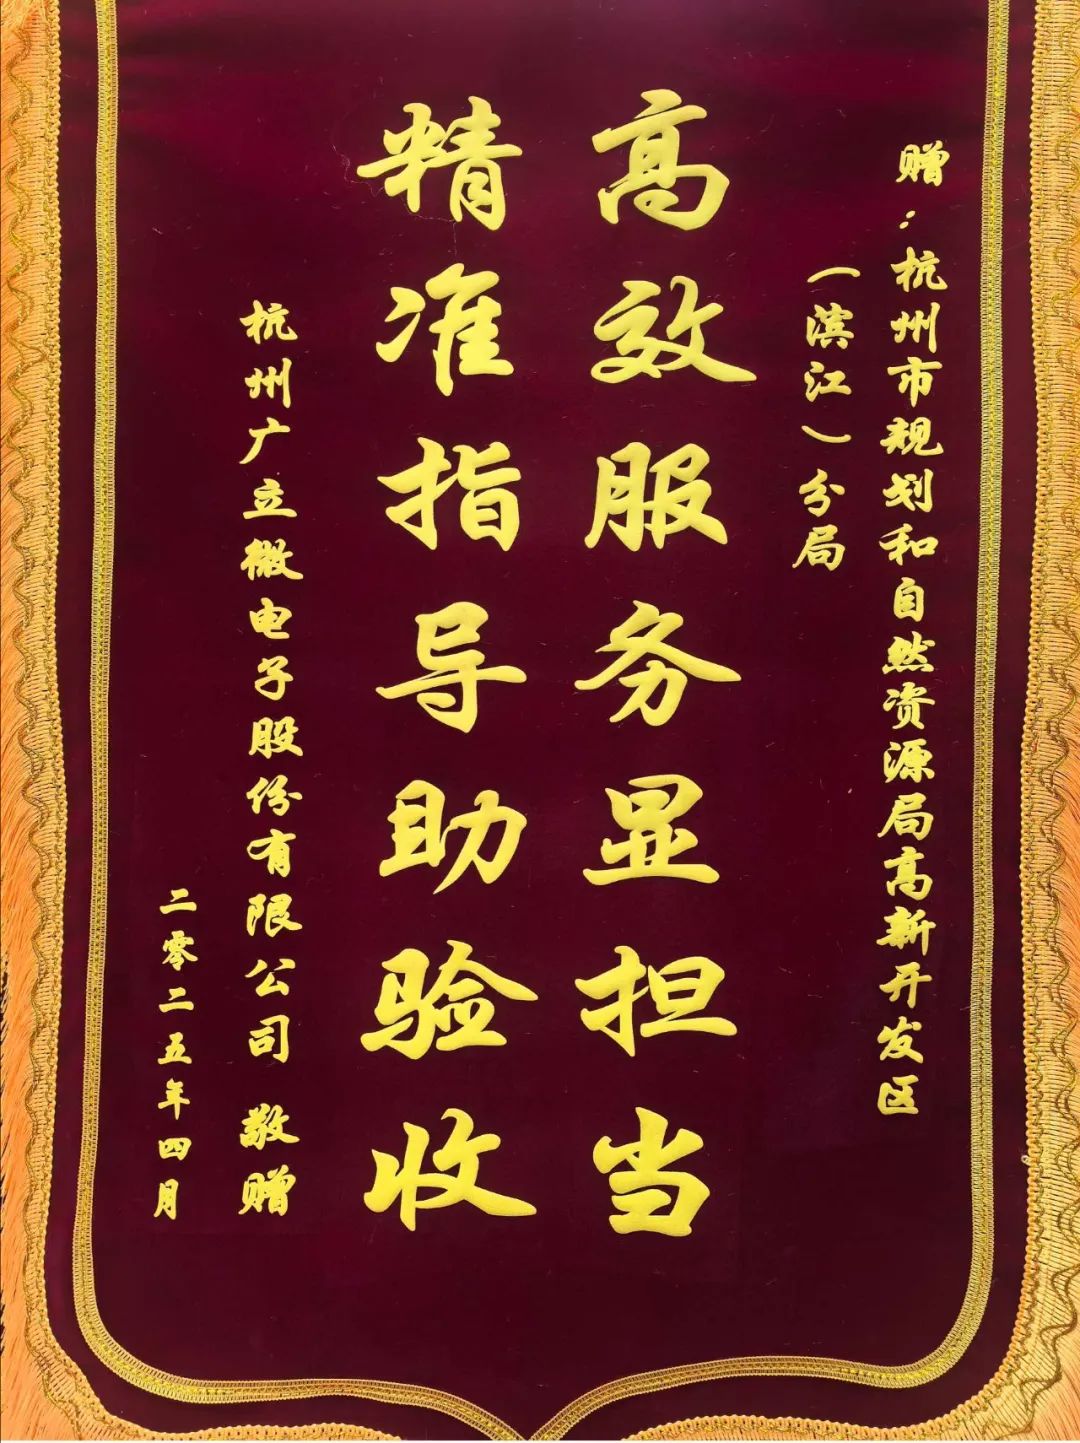 赠：杭州市规划和自然资源局高新开发区
（滨江）分局
高效服务显担当
精准指导助验收
杭州广立微电子股份有限公司 敬赠
二零二五年四月